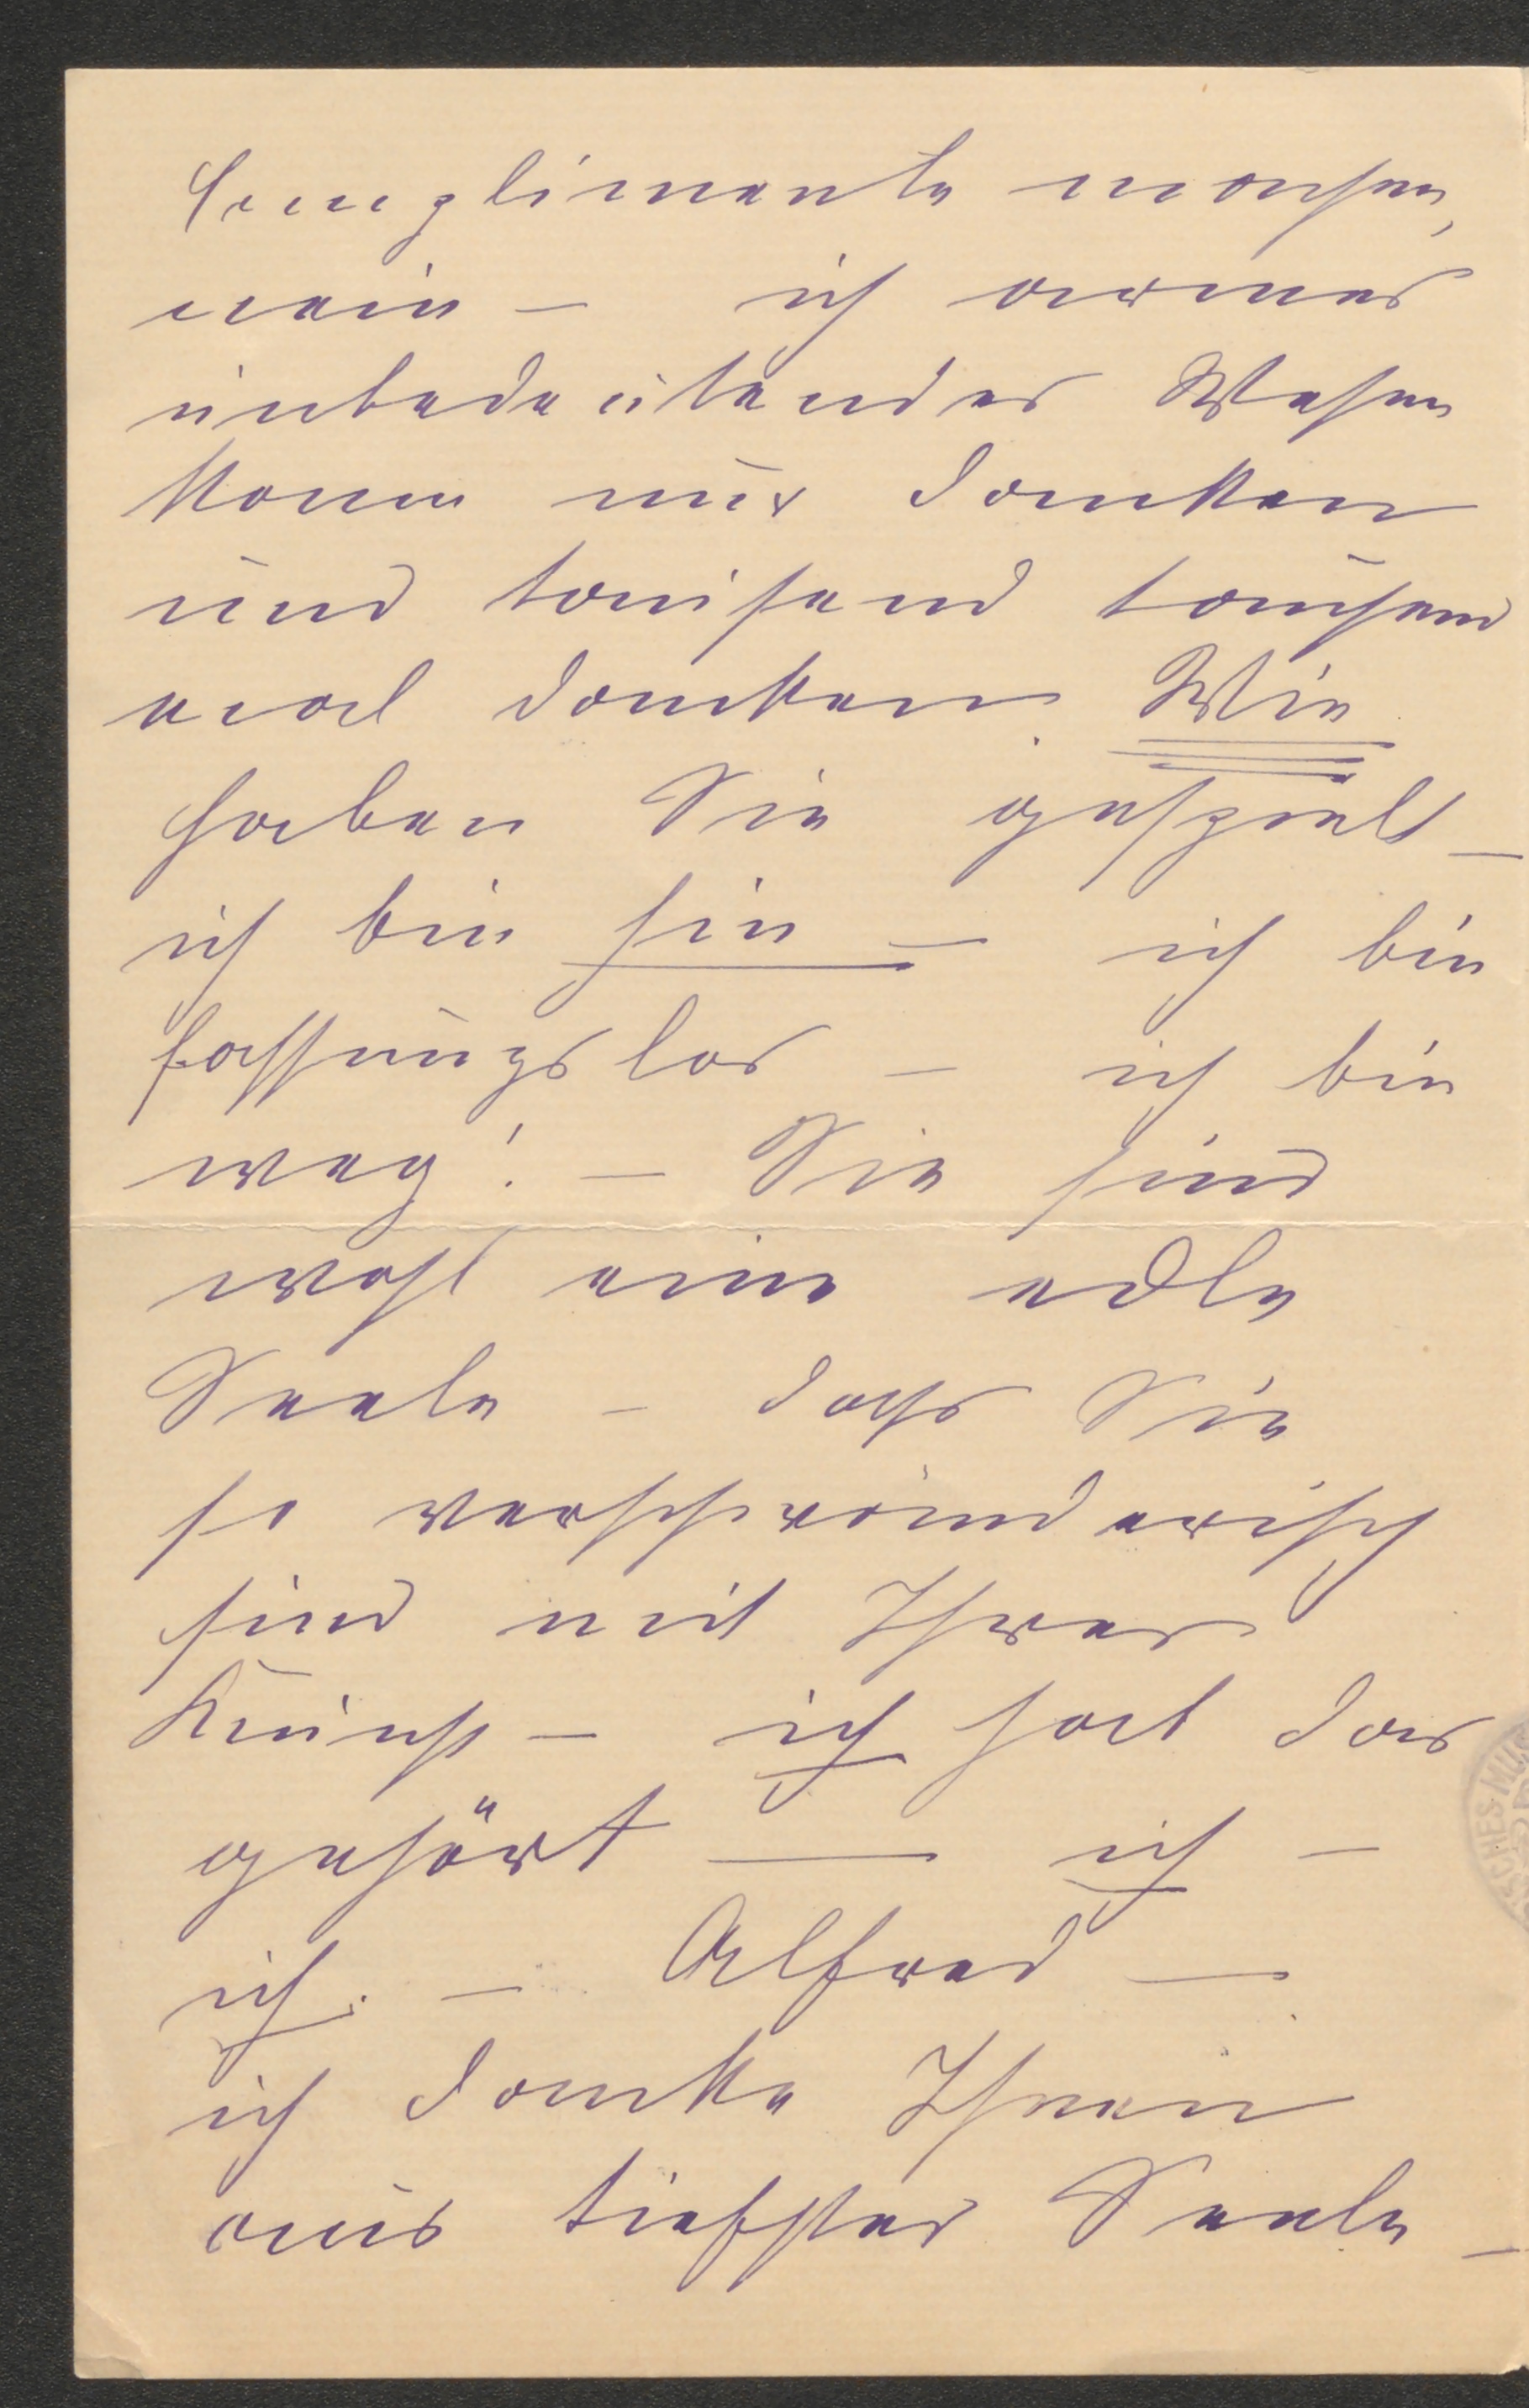 Complimente machen,
nein – ich armes
unbedeutendes Wesen
kann nur danken
und tausend tausend
mal danken. Wie
haben Sie gespielt –
ich bin hin – ich bin
fassungslos – ich bin
weg! – Sie sind
wohl eine edle
Seele – dass Sie
so verschwänderisch
sind mit Ihrer
Kunst – ich hab das
gehört — ich –
ich. – Alfred —
ich danke Ihnen
aus tiefster Seele –
SCHES MUS